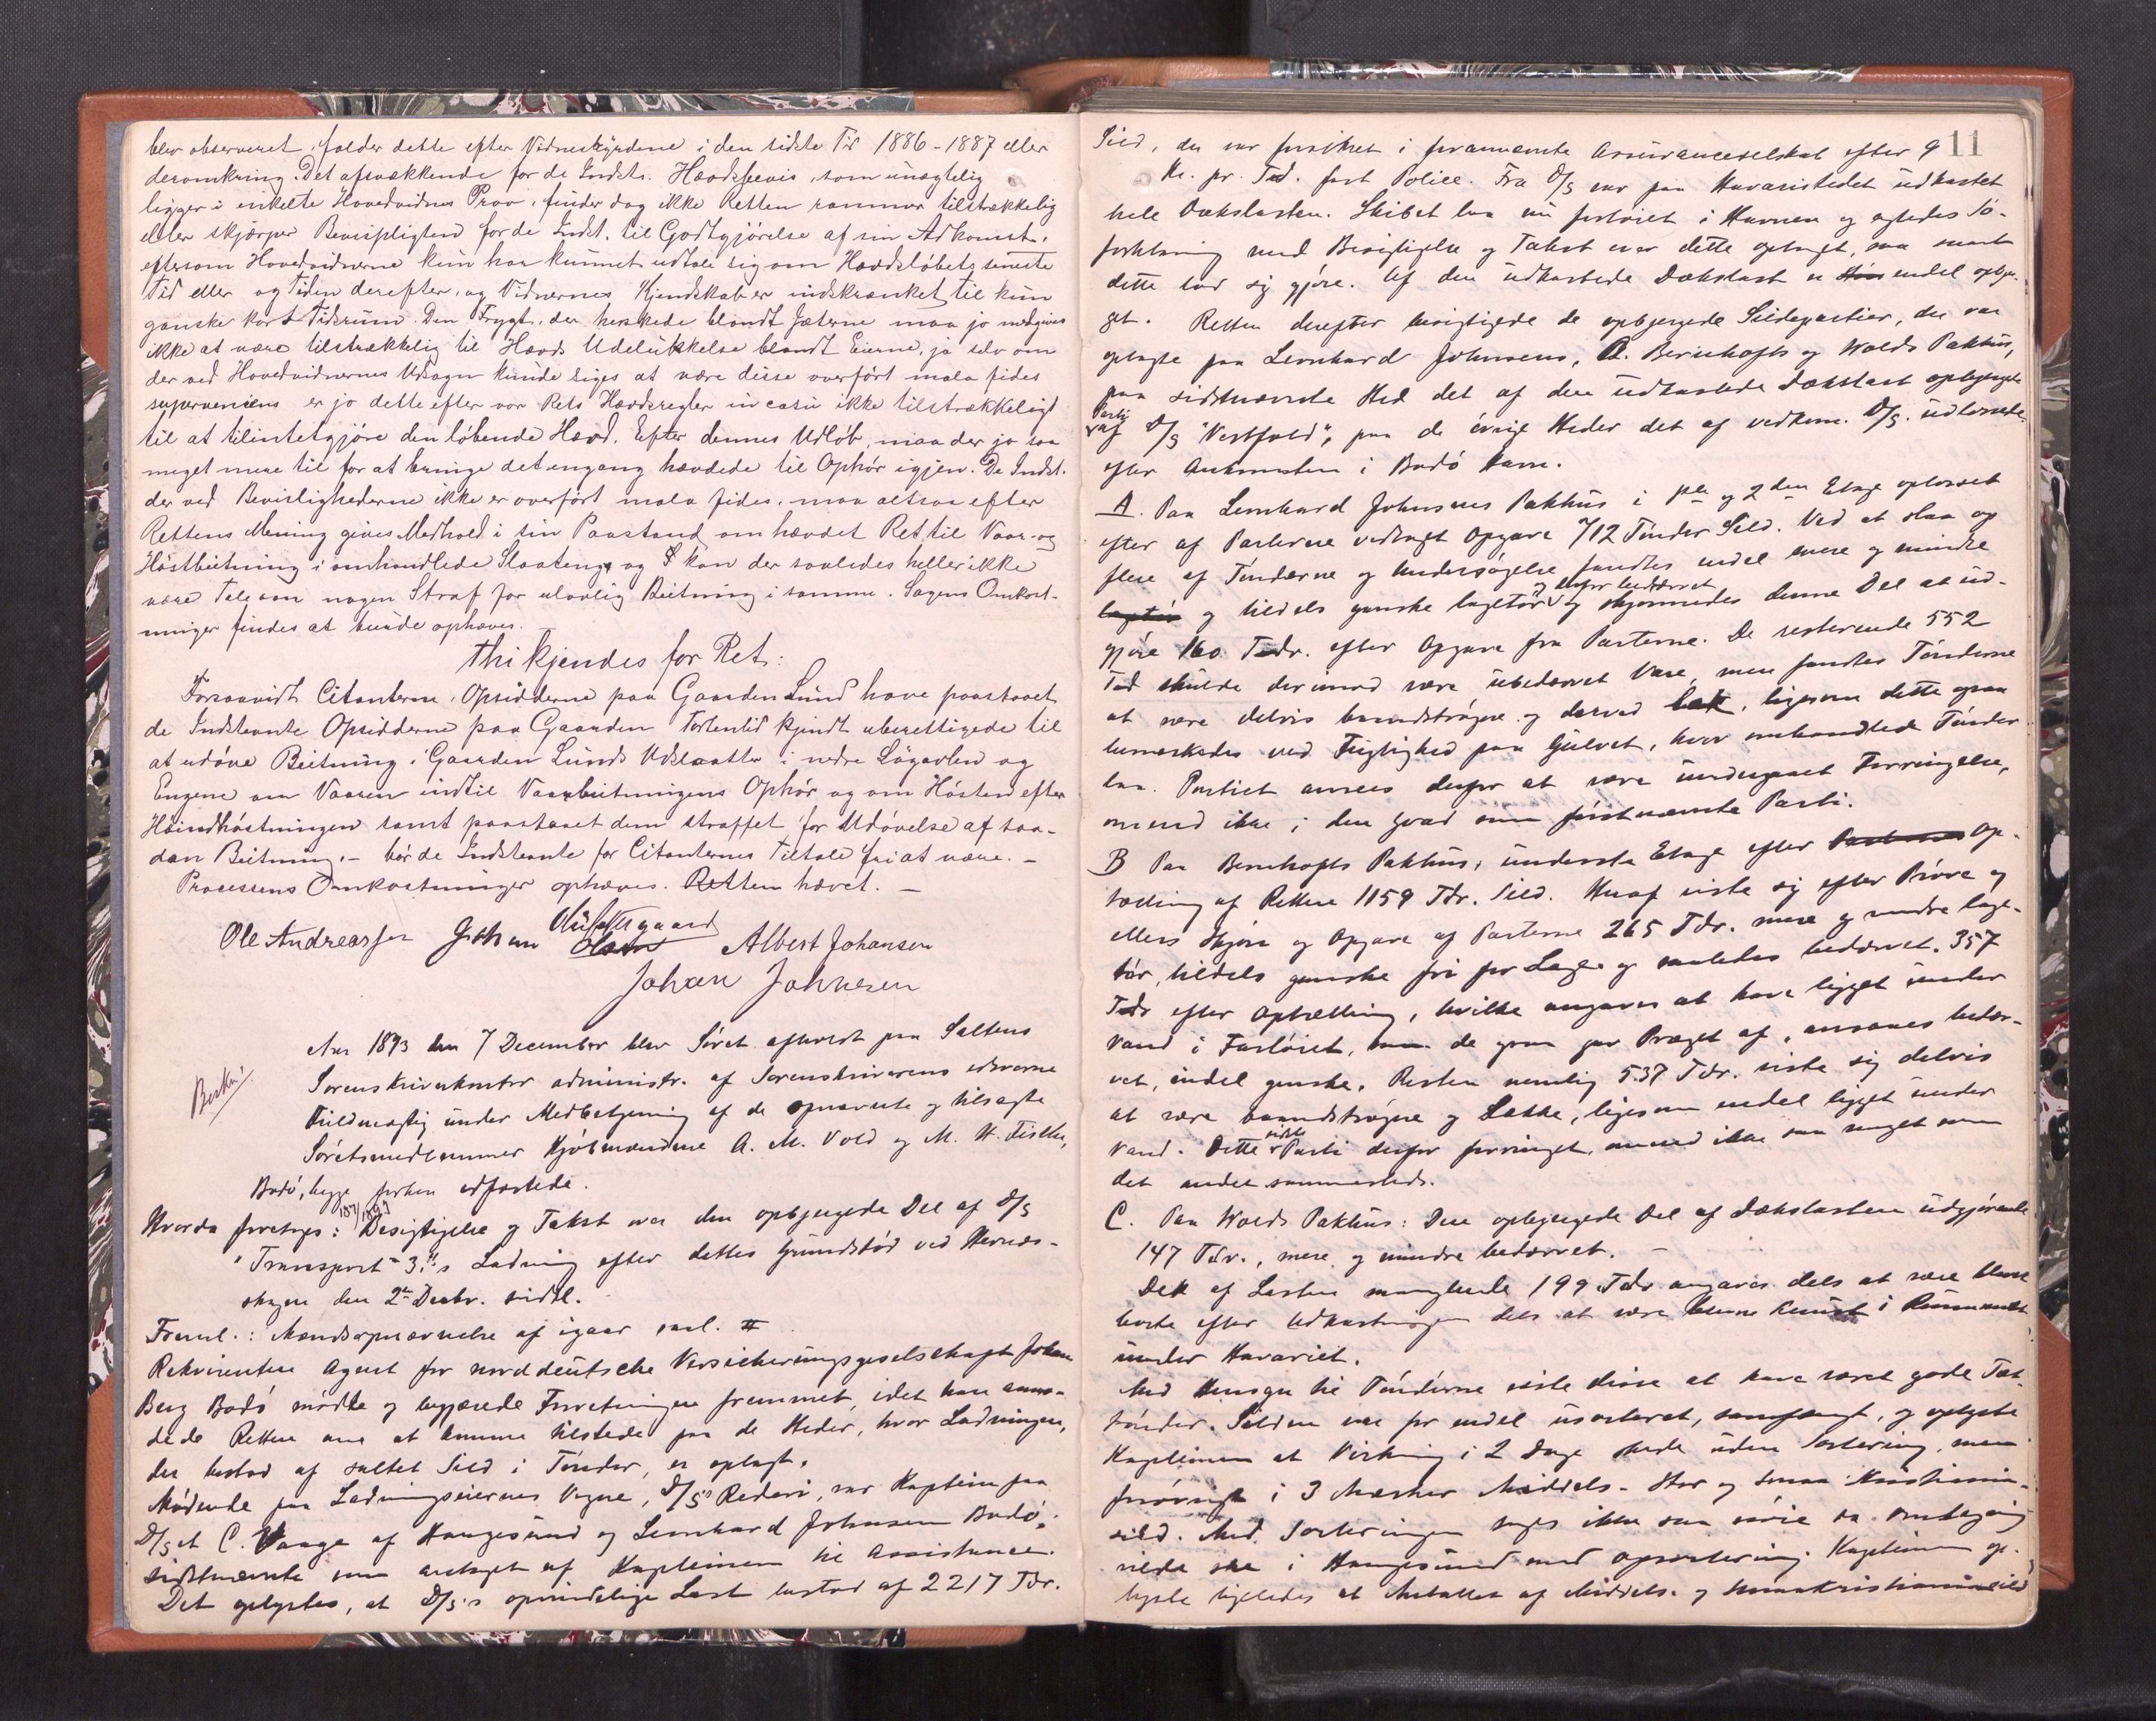 blev observeret, falder dette efter Vidneskyrdene i den sidste Tid 1886-1887 eller
deromkring. Det afsvækkende for de Indsts. Hævdsbevis, som unægtelig
ligger i enkelte Hovedvidners Prov, finder dog ikke Retten rammer tilstrækkelig
eller skjærper Bevispligten for de Indst. til Godtgjörelse af sin Adkomst,
eftersom Hovedvidnerne kun har kunnet udtale sig om Hævdslöbets seneste
Tid eller og Tiden derefter, og Vidnernes Kjendskab er indskrænket til kun
ganske kort Tidsrum. Den Frygt, der herskede blandt Jæterne maa jo medgives
ikke at være tilstrækkelig til Hævds Udelukkelse blandt Eierne, ja selv om
der ved Hovedvidnernes Udsagn kunde siges at være disse overfört mala fides
superveniens er jo dette efter vor Rets Hævdsregler in casu ikke tilstrækkeligt
til at tilintetgjöre den löbende Hævd. Efter dennes Udlöb, maa der jo saa
meget mere til for at bringe det engang hævdede til Ophör igjen. De Indst.
der ved Bevislighederne ikke er overfört mala fides, maa altsaa efter
Rettens Mening gives Medhold i sin Paastand om hævdet Ret til Vaar- og
Höstbeitning i omhandlede Slaatenge og kan der saaledes heller ikke
være Tale om nogen Straf for ulovlig Beitning i samme. Sagens Omkost-
ninger findes at burde ophæves.
Thi kjendes for Ret:
Forsaavidt Citanterne, Opsidderne paa Gaarden Lund have paastaaet
de Indstevnte Opsidderne paa Gaarden Tortenlid kjendt uberettigede til
at udöve Beitning i Gaarden Lunds Udslaatter i nedre Lögavlen og
Engene om Vaaren indtil Vaarbeitningens Ophör og om Hösten efter
Höindhöstningen samt paastaaet dem straffet for Udövelse af saa-
dan Beitning, - bör de Indstevnte for Citanternes Tiltale fri at være. -
Processens Omkostninger ophæves. Retten hævet. -
Ole Andreassen Johan Olsen Albert Johansen
Johan Johnesen
Aar 1893 den 7 December blev Söret afholdt paa Saltens
Sorenskriverkontor administr. af Sorenskriverens edsvorne
Fuldmægtig under Medbetjening af de opnævnte og tilsagte
Söretsmedlemmer Kjöbmændene A. M. Vold og M. H. Fisker,
Bodö, begge forhen edfæstede.
Hvorda foretoges: Besigtigelse og Takst over den opbjergede Del af D/S
"Transport 3"s Ladning efter dettes Grundstöd ved Hernæs-
skagen den 2de Decbr. sidstl.
Freml.: Mandsopnævnelse af igaar saal. #
Rekvirenten Agent for norddeutsche Versicherungsgeselschaft Johan
Berg Bodö mödte og begjærede Forretningen fremmet, idet han anmo-
dede Retten om at komme tilstede paa de Steder, hvor Ladningen,
der bestod af saltet Sild i Tönder, er oplagt.
Mödende paa Ladningseiernes Vegne, D/S's Rederi, var Kaptein paa
D/S'et C. Vaage af Haugesund og Lernhard Johnsen Bodö,
sidstnævnte som antaget af Kapteinen til Assistance.
Det oplystes, at D/S's oprindelige Last bestod af 2217 Tdr.
11
Sild, der var forsikret i forannævnte Assuranceselskab efter 9
Kr. pr. Td. fast Police. Fra D/S var paa Havaristedet udkastet
hele Dækslasten. Skibet laa nu fortöiet i Havnen og agtedes Sö-
forklaring med Besigtigelse og Takst over dette optaget, saa snart
dette lod sig gjöre. Af den udkastede Dækslast er endel opbjer-
get. Retten derefter besigtigede de opbjergede Sildepartier, der var
oplagte paa Lernhard Johnsens, A. Bernhofts og Wolds Pakhus,
paa sidstnævnte Sted det af den udkastede Dækslast opbjergede
Parti af D/S "Vestfold", paa de övrige Steder det af vedkom. D/S. udlossede
efter Ankomsten i Bodö Havn.
A. Paa Lernhard Johnsens Pakhus i 1ste og 2den Etage oplosset
efter af Parterne vedtaget Opgave 712 Tönder Sild. Ved at slaa op
flere af Tönderne og Undersögelse fandtes endel mere og mindre
og tildels ganske lagetör og derfor bedærvet og skjönnedes denne Del at ud-
gjöre 160 Tdr. efter Opgave fra Parterne. De resterende 552
Td skulde derimod være ubedærvet Vare, men fandtes Tönderne
at være delvis baandströgne og derved læk, ligesom dette ogsaa
bemærkedes ved Fugtighed paa Gulvet, hvor omhandlede Tönder
laa. Partiet ansees derfor at være undergaaet Forringelse,
omend ikke i den Grad som förstnævnte Parti.
B Paa Bernhofts Pakhus, underste Etage efter Op-
tælling af Retten 1159 Tdr. Sild. Heraf viste sig efter Pröve og
ellers Skjön og Opgave af Parterne 265 Tdr. mere og mindre lage-
tör, tildels ganske fri for Lage og saaledes bedærvet. 357
Tdr efter Optælling, hvilke angaves at have ligget under
Vand i Fartöiet, de ogsaa gav Præget af, ansaaes bedær-
vet, endel ganske. Resten nemlig 537 Tdr. viste sig delvis
at være baandströgne og Lække, ligesom endel ligget under
Vand. Dette sidste Parti derfor forringet, omend ikke saa meget som
det andet sammesteds.
C. Paa Wolds Pakhus: Den opbjergede Del af Dækslasten udgjörende
147 Tdr., mere og mindre bedærvet. -
Det af Lasten manglende 199 Tdr angaves dels at være blevne
borte efter Udkastningen dels at være i Rummet
under Havariet.
Med Hensyn til Tönderne viste disse at have været gode Tæt-
tönder. Silden var for endel usorteret, og oplyste
Kapteinen at Virkning i 2 Dage skede uden Sortering, men
forövrigt i 3 Mærker Middels- Stor og Smaa Kristiania-
sild. Med Sorteringen toges ikke saa nöie da Omlægning
vilde ske i Haugesund med Opsortering. Kapteinen op-
lyste ligeledes at Antallet af Middels- og Smaakristianiasild